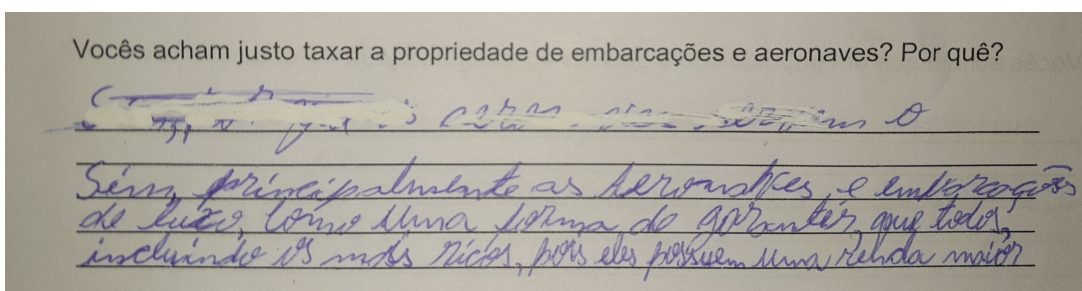 Vocês acham justo taxar a propriedade de embarcações e aeronaves? Por quê?
Sim, principalmente as aeronaves, e embarcações
de luxo, como uma forma de garantir, que todos,
incluindo os mais ricos, pois eles possuem uma, renda maior